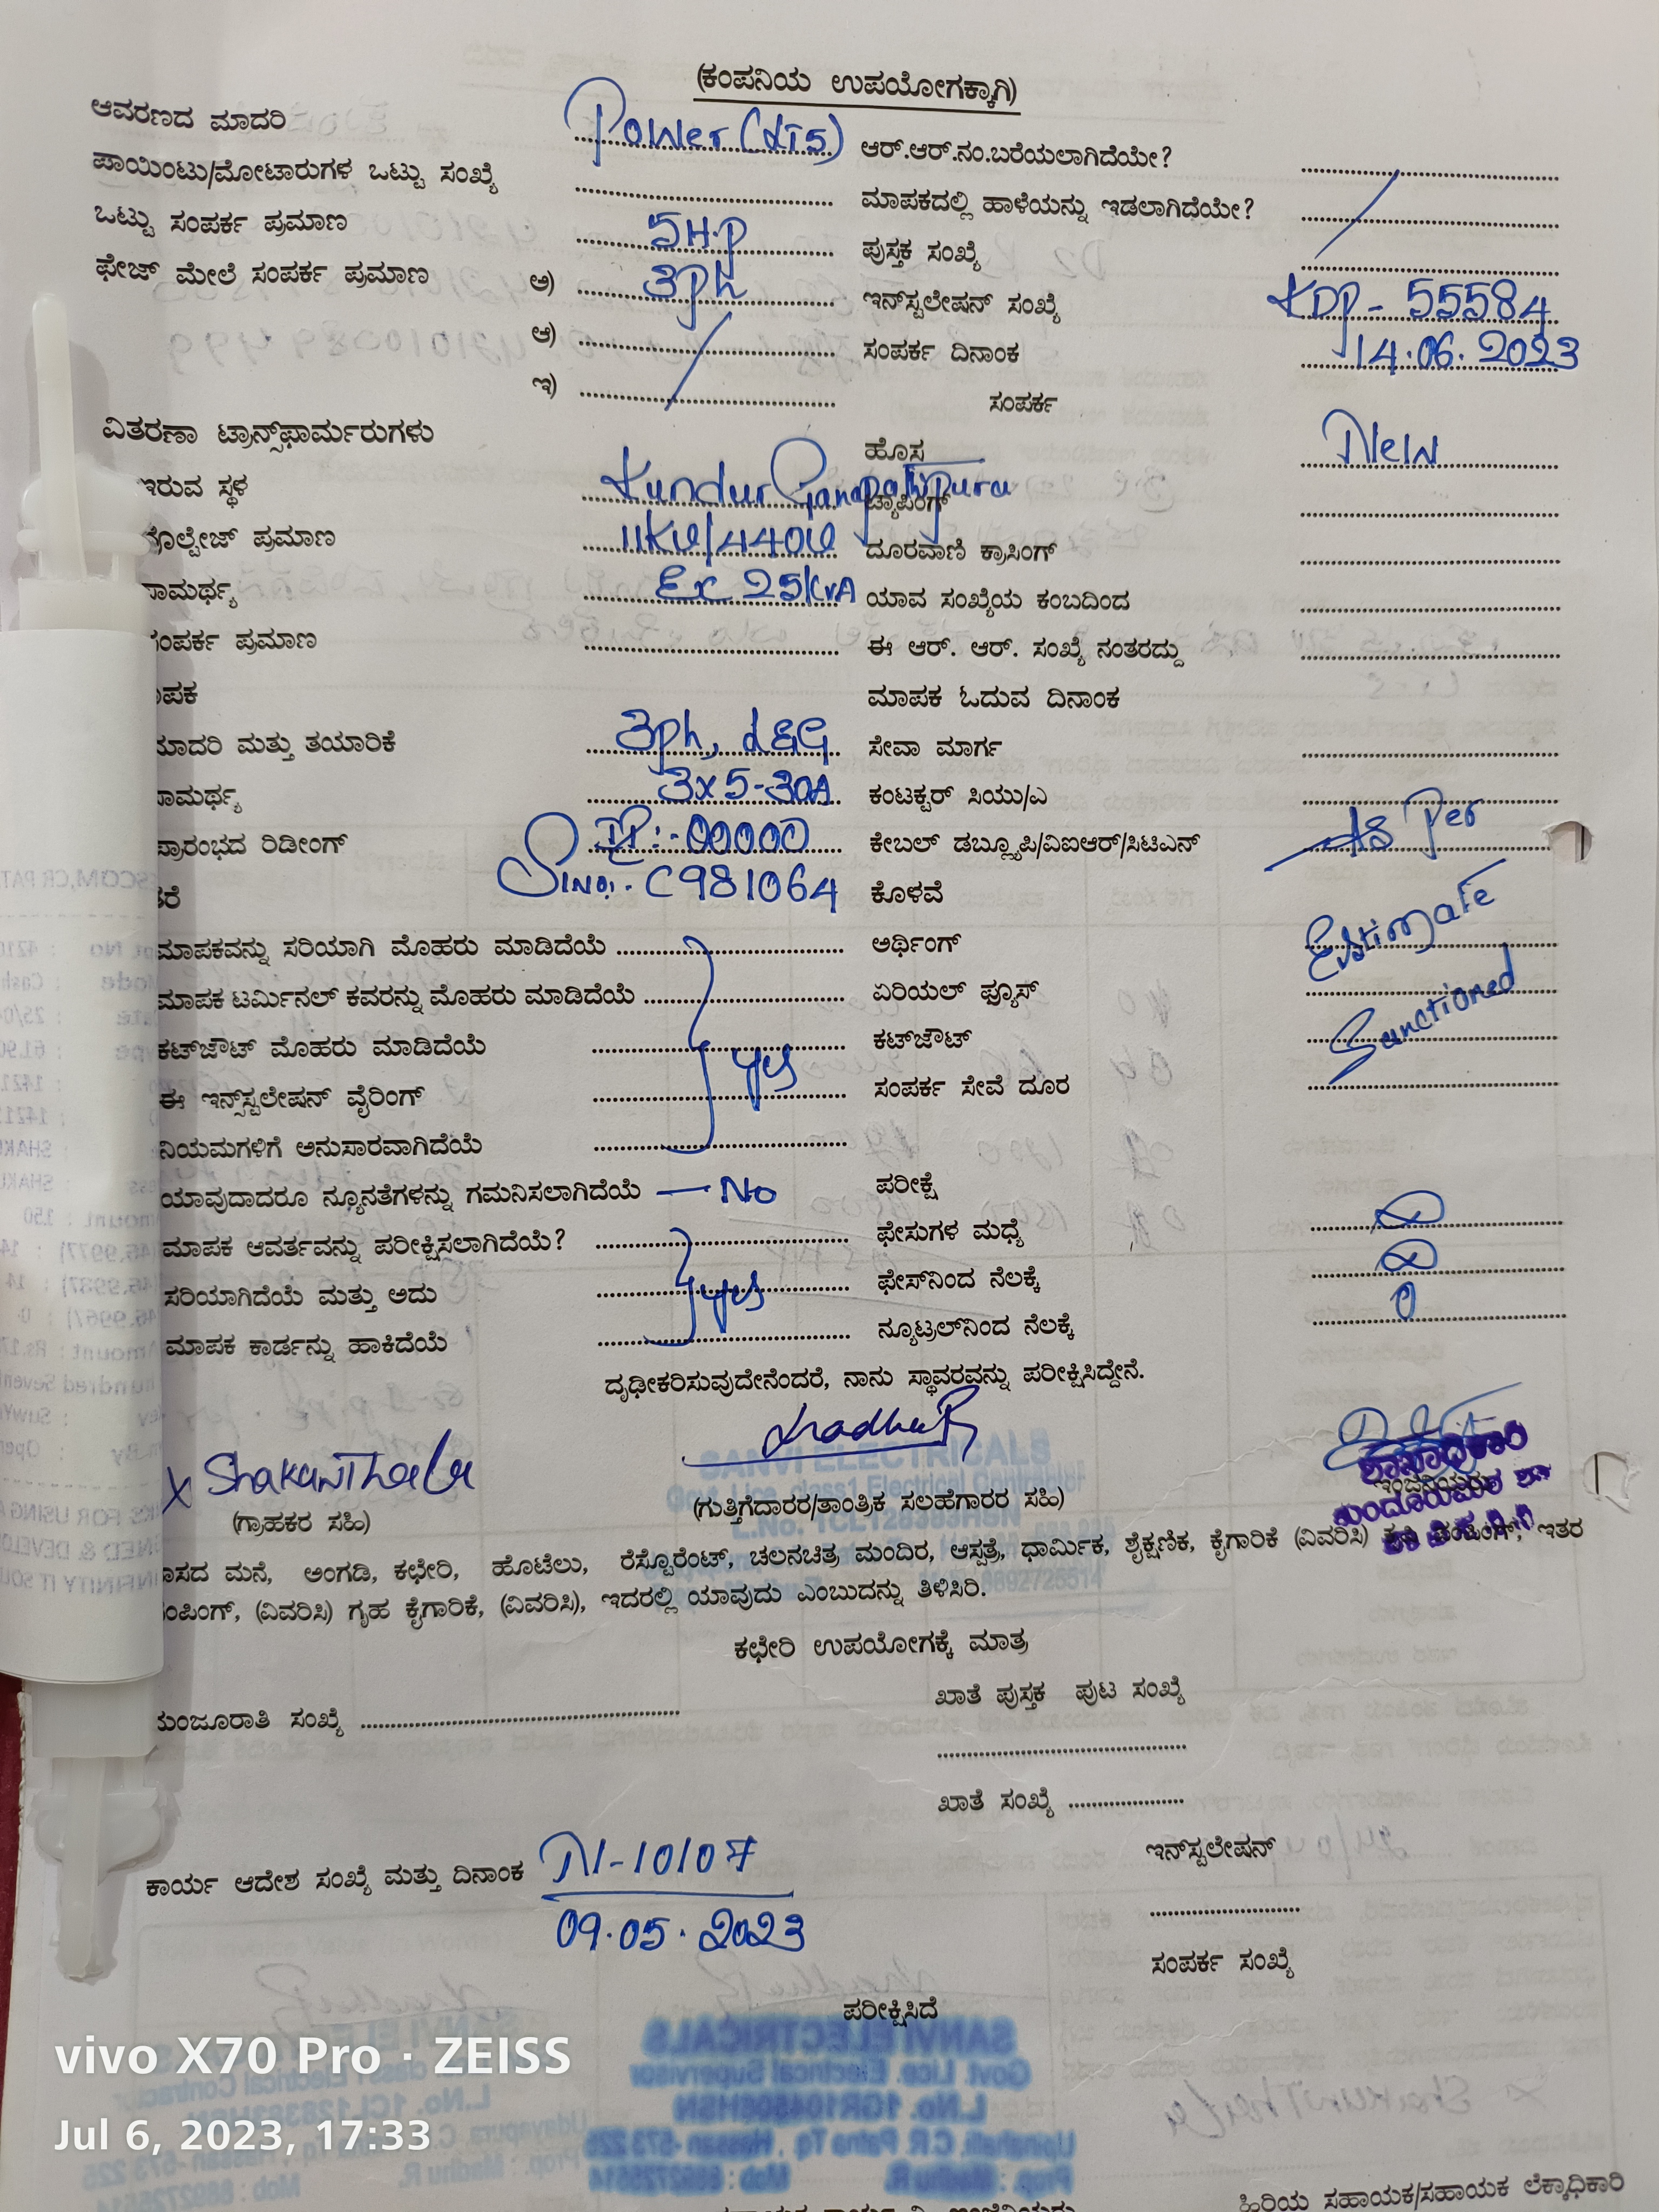 (ಕಂಪನಿಯ ಉಪಯೋಗಕ್ಕಾಗಿ)
ಆವರಣದ ಮಾದರಿ Power (LT5) ಆರ್.ಆರ್.ನಂ.ಬರೆಯಲಾಗಿದೆಯೇ?
ಪಾಯಿಂಟು/ಮೋಟಾರುಗಳ ಒಟ್ಟು ಸಂಖ್ಯೆ ಮಾಪಕದಲ್ಲಿ ಹಾಳೆಯನ್ನು ಇಡಲಾಗಿದೆಯೇ?
ಒಟ್ಟು ಸಂಪರ್ಕ ಪ್ರಮಾಣ 5H.P ಪುಸ್ತಕ ಸಂಖ್ಯೆ
ಫೇಜ್ ಮೇಲೆ ಸಂಪರ್ಕ ಪ್ರಮಾಣ ಅ) 3ph ಇನ್‌ಸ್ಟಲೇಷನ್ ಸಂಖ್ಯೆ KDP- 55584
ಆ) ಸಂಪರ್ಕ ದಿನಾಂಕ 14.06.2023
ಇ) ಸಂಪರ್ಕ
ವಿತರಣಾ ಟ್ರಾನ್ಸ್‌ಫಾರ್ಮರುಗಳು ಹೊಸ New
ಇರುವ ಸ್ಥಳ Kundur Ganapathipura ಟ್ಯಾಪಿಂಗ್
ವೋಲ್ಟೇಜ್ ಪ್ರಮಾಣ 11KV/440V ದೂರವಾಣಿ ಕ್ರಾಸಿಂಗ್
ಸಾಮರ್ಥ್ಯ Ex 25KVA ಯಾವ ಸಂಖ್ಯೆಯ ಕಂಬದಿಂದ
ಸಂಪರ್ಕ ಪ್ರಮಾಣ ಈ ಆರ್. ಆರ್. ಸಂಖ್ಯೆ ನಂತರದ್ದು
ಪಕ ಮಾಪಕ ಓದುವ ದಿನಾಂಕ
ಮಾದರಿ ಮತ್ತು ತಯಾರಿಕೆ 3ph, L&G ಸೇವಾ ಮಾರ್ಗ
ಸಾಮರ್ಥ್ಯ 3x5-30A ಕಂಟಕ್ಟರ್ ಸಿಯು/ಎ
ಪ್ರಾರಂಭದ ರಿಡೀಂಗ್ IR:-00000 ಕೇಬಲ್ ಡಬ್ಲ್ಯೂಪಿ/ವಿಐಆರ್/ಸಿಟಿಎನ್ As Per
ತರೆ Sl.No:- C981064 ಕೊಳವೆ
ಮಾಪಕವನ್ನು ಸರಿಯಾಗಿ ಮೊಹರು ಮಾಡಿದೆಯೆ ಅರ್ಥಿಂಗ್ Estimate
ಮಾಪಕ ಟರ್ಮಿನಲ್ ಕವರನ್ನು ಮೊಹರು ಮಾಡಿದೆಯೆ ಏರಿಯಲ್ ಫ್ಯೂಸ್
ಕಟ್‌ಔಟ್ ಮೊಹರು ಮಾಡಿದೆಯೆ ಕಟ್‌ಔಟ್ Sanctioned
ಈ ಇನ್‌ಸ್ಟಲೇಷನ್ ವೈರಿಂಗ್ yes ಸಂಪರ್ಕ ಸೇವೆ ದೂರ
ನಿಯಮಗಳಿಗೆ ಅನುಸಾರವಾಗಿದೆಯೆ
ಯಾವುದಾದರೂ ನ್ಯೂನತೆಗಳನ್ನು ಗಮನಿಸಲಾಗಿದೆಯೆ — No ಪರೀಕ್ಷೆ
ಮಾಪಕ ಆವರ್ತವನ್ನು ಪರೀಕ್ಷಿಸಲಾಗಿದೆಯೆ? ಫೇಸುಗಳ ಮಧ್ಯೆ ∞
ಸರಿಯಾಗಿದೆಯೆ ಮತ್ತು ಅದು yes ಫೇಸ್‌ನಿಂದ ನೆಲಕ್ಕೆ ∞
ಮಾಪಕ ಕಾರ್ಡನ್ನು ಹಾಕಿದೆಯೆ ನ್ಯೂಟ್ರಲ್‌ನಿಂದ ನೆಲಕ್ಕೆ 0
ದೃಢೀಕರಿಸುವುದೇನೆಂದರೆ, ನಾನು ಸ್ಥಾವರವನ್ನು ಪರೀಕ್ಷಿಸಿದ್ದೇನೆ.
X Shakunthala MadhuR ಶಾಖಾಧಿಕಾರಿ
(ಗ್ರಾಹಕರ ಸಹಿ) (ಗುತ್ತಿಗೆದಾರರ/ತಾಂತ್ರಿಕ ಸಲಹೆಗಾರರ ಸಹಿ)
ವಾಸದ ಮನೆ, ಅಂಗಡಿ, ಕಛೇರಿ, ಹೊಟೆಲು, ರೆಸ್ಟೊರೆಂಟ್, ಚಲನಚಿತ್ರ ಮಂದಿರ, ಆಸ್ಪತ್ರೆ, ಧಾರ್ಮಿಕ, ಶೈಕ್ಷಣಿಕ, ಕೈಗಾರಿಕೆ (ವಿವರಿಸಿ) ಪಂಪಿಂಗ್, ಇತರ
ಪಂಪಿಂಗ್, (ವಿವರಿಸಿ) ಗೃಹ ಕೈಗಾರಿಕೆ, (ವಿವರಿಸಿ), ಇದರಲ್ಲಿ ಯಾವುದು ಎಂಬುದನ್ನು ತಿಳಿಸಿರಿ.
ಕಛೇರಿ ಉಪಯೋಗಕ್ಕೆ ಮಾತ್ರ
ಮಂಜೂರಾತಿ ಸಂಖ್ಯೆ ಖಾತೆ ಪುಸ್ತಕ ಪುಟ ಸಂಖ್ಯೆ
ಖಾತೆ ಸಂಖ್ಯೆ
ಇನ್‌ಸ್ಟಲೇಷನ್
ಕಾರ್ಯ ಆದೇಶ ಸಂಖ್ಯೆ ಮತ್ತು ದಿನಾಂಕ N-10107
09.05.2023
ಸಂಪರ್ಕ ಸಂಖ್ಯೆ
ಪರೀಕ್ಷಿಸಿದೆ
vivo X70 Pro · ZEISS
Jul 6, 2023, 17:33
ಹಿರಿಯ ಸಹಾಯಕ/ಸಹಾಯಕ ಲೆಕ್ಕಾಧಿಕಾರಿ